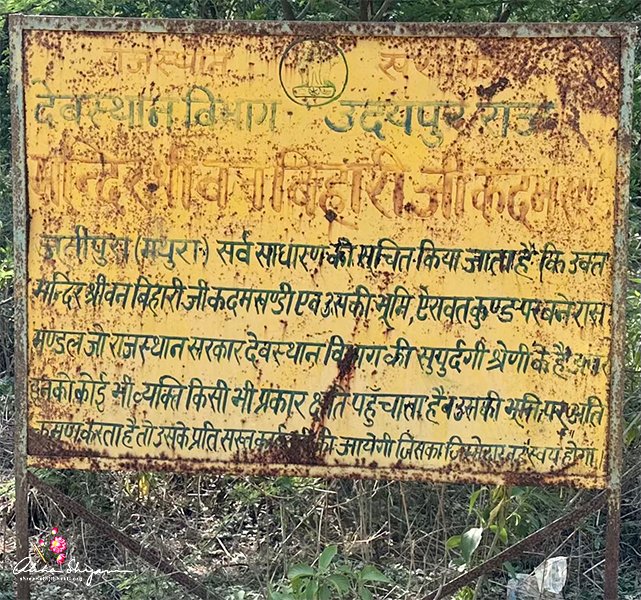 राजस्थान सरकार
देवस्थान विभाग उदयपुर राज
मन्दिर श्री वन बिहारी जी कदमखण्डी
जतीपुरा (मथुरा) सर्व साधारण को सूचित किया जाता है कि उक्त
मन्दिर श्री वन बिहारी जी कदमखण्डी एवं उसकी भूमि, ऐरावत कुण्ड पर बने रास
मण्डल जो राजस्थान सरकार देवस्थान विभाग की सुपुर्दगी श्रेणी के है अगर
इनको कोई भी व्यक्ति किसी भी प्रकार क्षति पहुँचाता है व उसकी भूमि पर अति
क्रमण करता है तो उसके प्रति सख्त कार्यवाही की जायेगी जिसका जिम्मेदार वह स्वयं होगा।
shreenathjibhakti.org